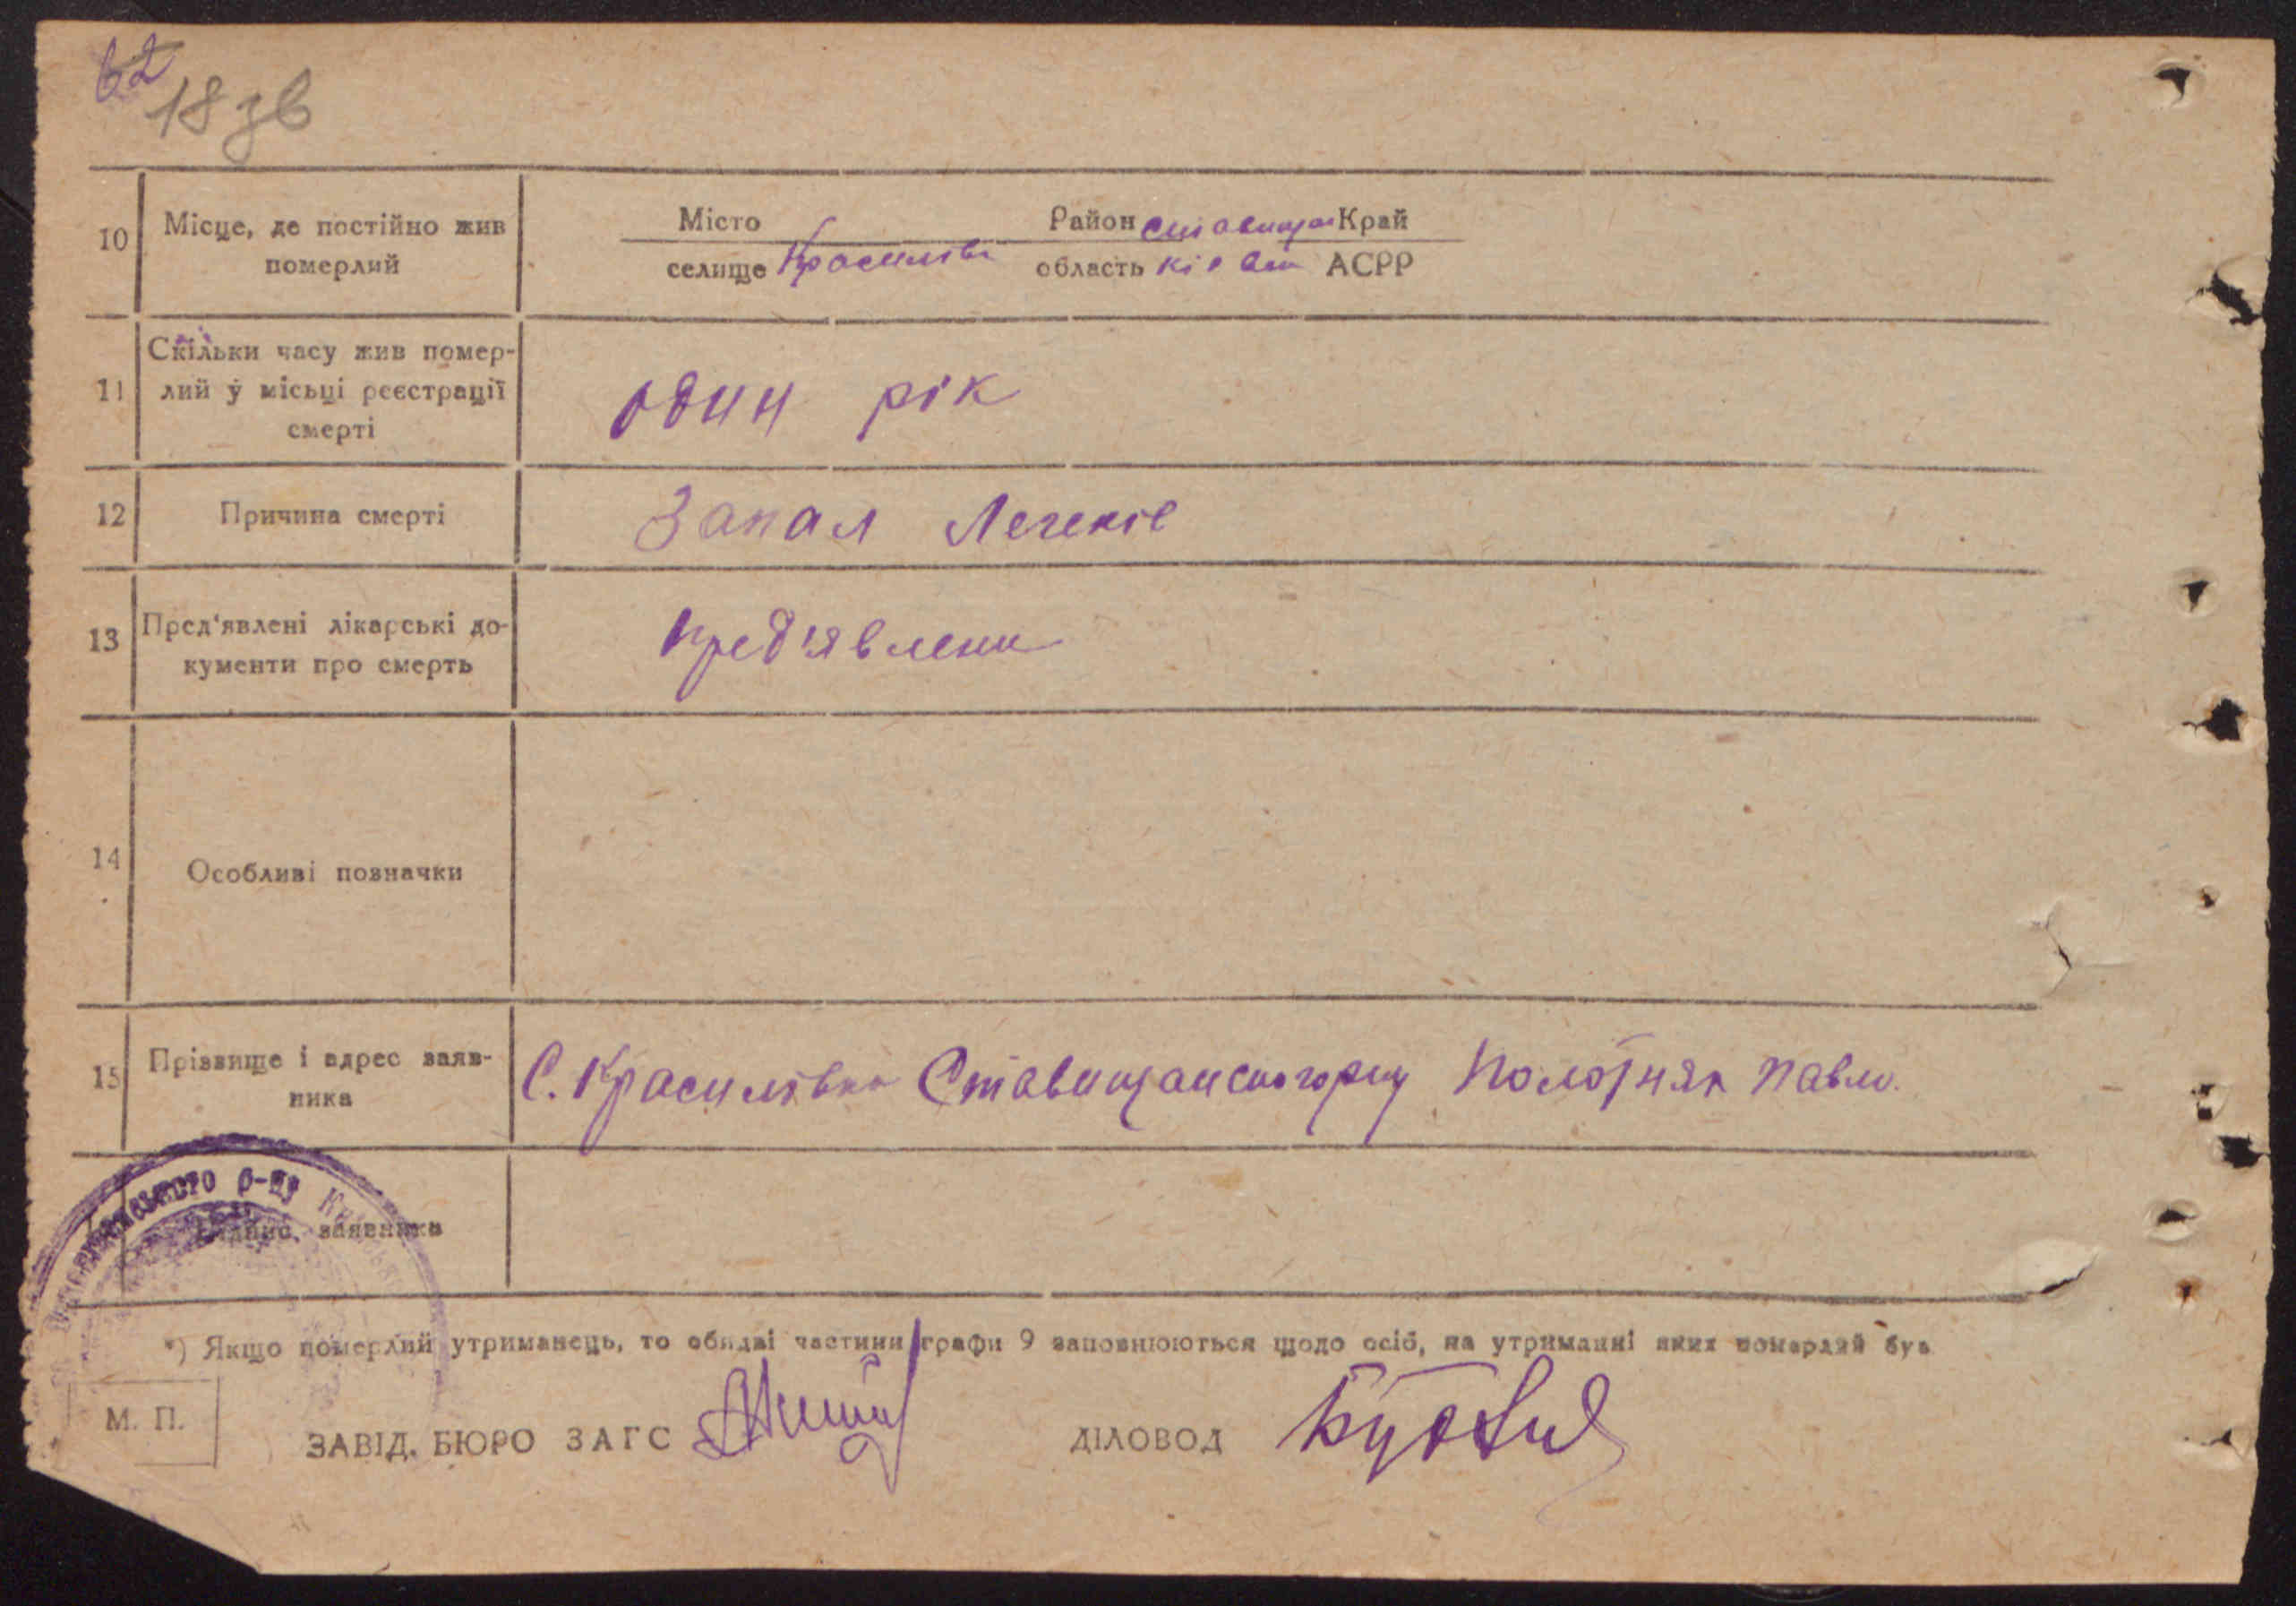 62
18 зв
10 Місце, де постійно жив померлий
Місто Район Ставищан Край
селище Красилівк область Київськ АСРР
11 Скільки часу жив помер-
лий у місці реєстрації
смерті
один рік
12 Причина смерті Запал Легенів
13 Пред'явлені лікарські до-
кументи про смерть
пред'явлени
14 Особливі позначки
15 Прізвище і адрес заяв-
ника
С. Красилівка Ставищанського р-ну Полотняк Павло.
Підпис заявника
р-ну
*) Якщо померлий утриманець, то обидві частини графи 9 заповнюються щодо осіб, на утриманні яких померлий був
М. П.
ЗАВІД. БЮРО ЗАГС
ДІЛОВОД